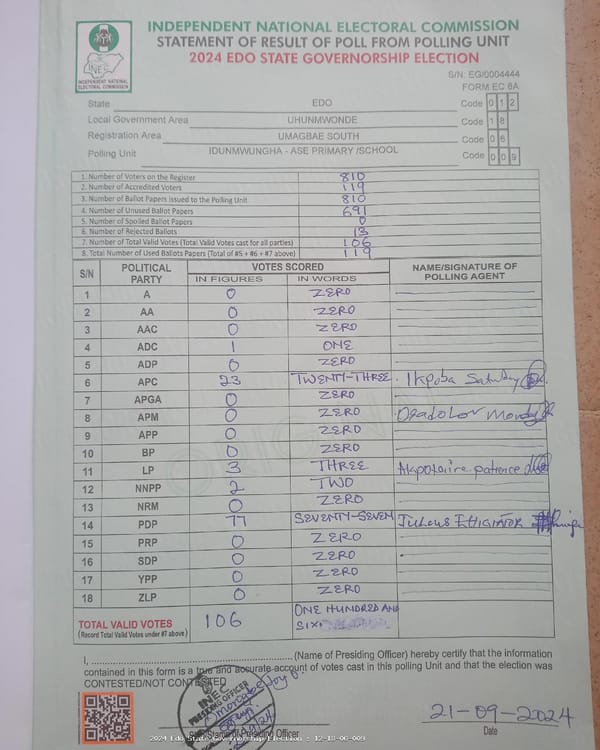 INDEPENDENT NATIONAL ELECTORAL COMMISSION
STATEMENT OF RESULT OF POLL FROM POLLING UNIT
2024 EDO STATE GOVERNORSHIP ELECTION
INEC
INDEPENDENT NATIONAL ELECTORAL COMMISSION
S/N: EG/0004444
FORM EC 8A
State EDO Code 0 1 2
Local Government Area UHUNMWONDE Code 1 8
Registration Area UMAGBAE SOUTH Code 0 6
Polling Unit IDUNMWUNGHA - ASE PRIMARY /SCHOOL Code 0 0 9
1. Number of Voters on the Register 810
2. Number of Accredited Voters 119
3. Number of Ballot Papers Issued to the Polling Unit 810
4. Number of Unused Ballot Papers 691
5. Number of Spoiled Ballot Papers 0
6. Number of Rejected Ballots 13
7. Number of Total Valid Votes (Total Valid Votes cast for all parties) 106
8. Total Number of Used Ballots Papers (Total of #5 + #6 + #7 above) 119
S/N POLITICAL PARTY VOTES SCORED NAME/SIGNATURE OF POLLING AGENT
IN FIGURES IN WORDS
1 A 0 ZERO
2 AA 0 ZERO
3 AAC 0 ZERO
4 ADC 1 ONE
5 ADP 0 ZERO
6 APC 23 TWENTY-THREE Ikpoba Saturday
7 APGA 0 ZERO
8 APM 0 ZERO
9 APP 0 ZERO
10 BP 0 ZERO
11 LP 3 THREE patience
12 NNPP 2 TWO
13 NRM 0 ZERO
14 PDP 77 SEVENTY-SEVEN
15 PRP 0 ZERO
16 SDP 0 ZERO
17 YPP 0 ZERO
18 ZLP 0 ZERO
TOTAL VALID VOTES 106 ONE HUNDRED AND SIX
(Record Total Valid Votes under #7 above)
I, (Name of Presiding Officer) hereby certify that the information
contained in this form is a true and accurate account of votes cast in this polling Unit and that the election was
CONTESTED/NOT CONTESTED
INEC
PRESIDING OFFICER
21-09-2024
Date
2024 Edo State Governorship Election : 12-18-06-009